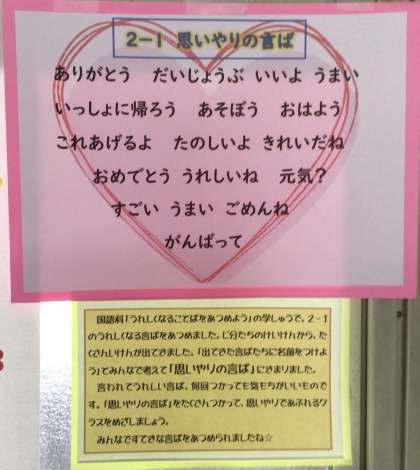 2-1 思いやりの言ば
ありがとう だいじょうぶ いいよ うまい
いっしょに帰ろう あそぼう おはよう
これあげるよ たのしいよ きれいだね
おめでとう うれしいね 元気?
すごい うまい ごめんね
がんばって
国語科「うれしくなることばをあつめよう」の学しゅうで、2-1
のうれしくなる言ばをあつめました。じ分たちのけいけんから、た
くさんいけんが出てきました。「出てきた言ばたちに名前をつけよ
う」てみんなで考えて「思いやりの言ば」にきまりました。
言われてうれしい言ば。何回つかっても気もちがいいもので
す。「思いやりの言ば」をたくさんつかって、思いやりであふれるク
ラスをめざしましょう。
みんなすてきな言ばをあつめられましたね☆